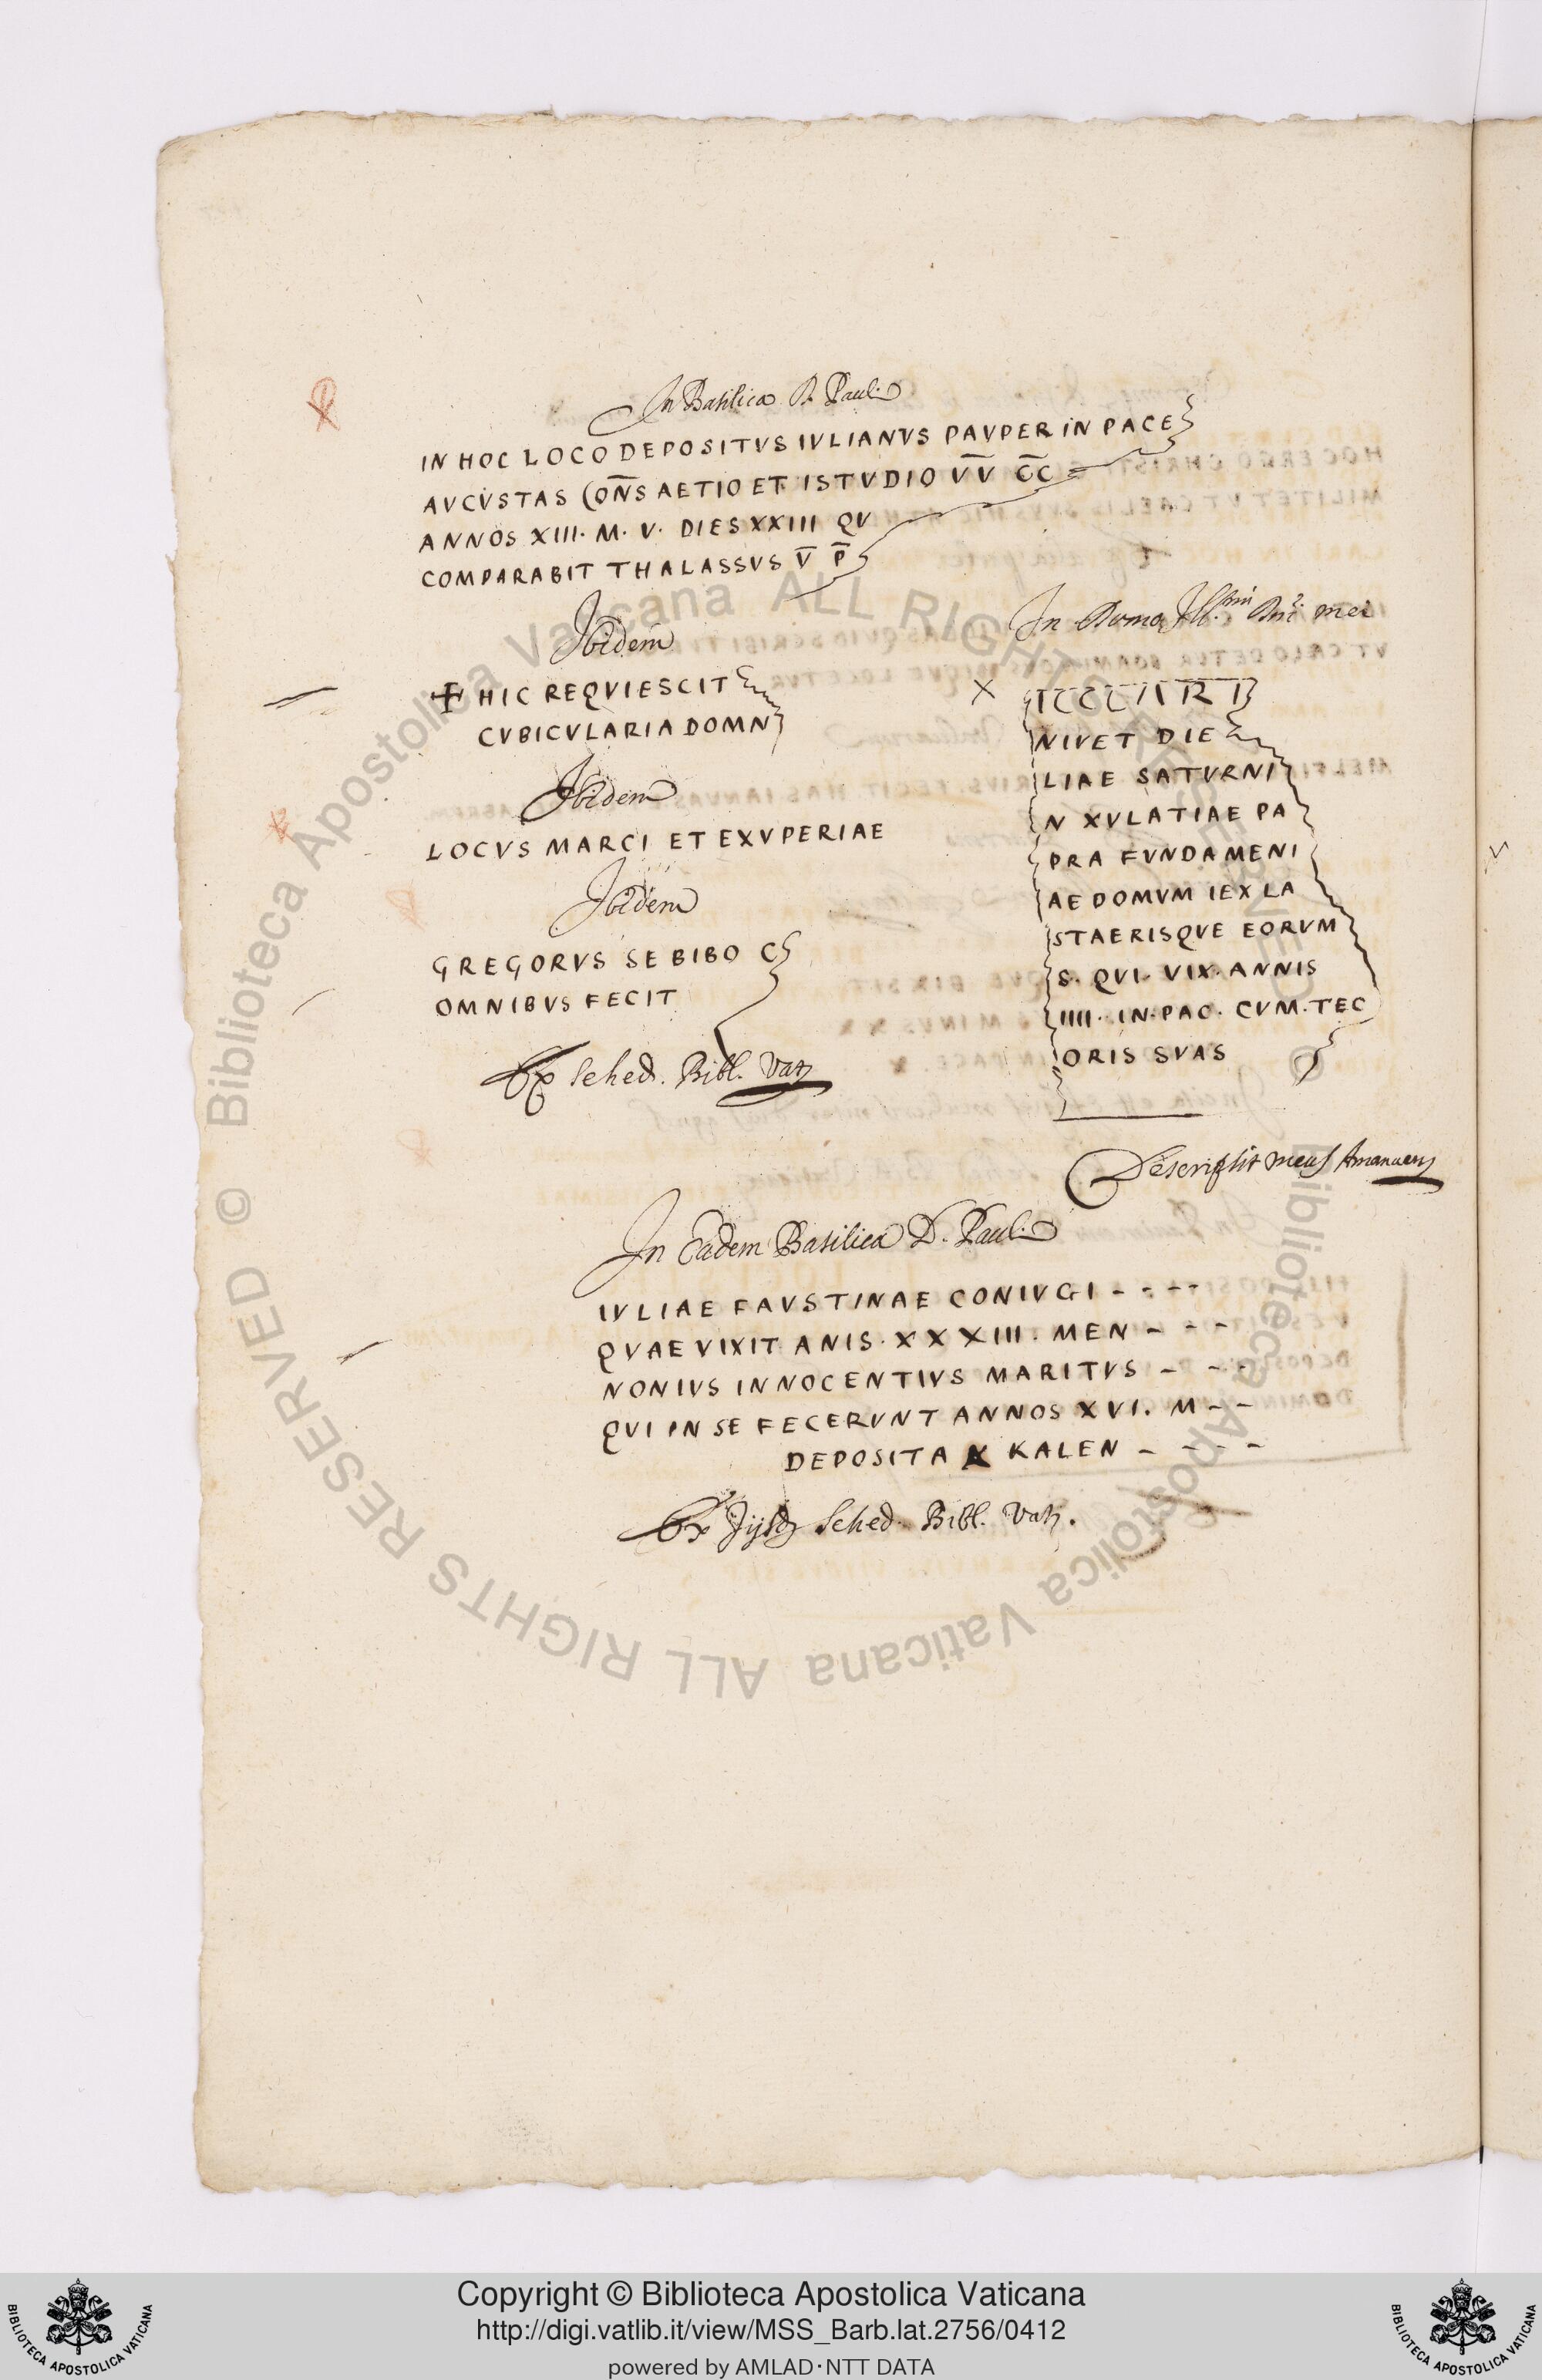 In Basilica D. Pauli
IN HOC LOCO DEPOSITVS IVLIANVS PAVPER IN PACE
AVCVSTAS CON̄S AETIO ET ISTVDIO V̄V̄ C̄C̄
ANNOS XIII. M. V. DIES XXIII QV
COMPARABIT THALASSVS V̄ P̄
Ibidem
✝ HIC REQVIESCIT
CVBICVLARIA DOMN
Ibidem
LOCVS MARCI ET EXVPERIAE
Ibidem
GREGORVS SE BIBO C
OMNIBVS FECIT
Ex Sched. Bibl. Vat
In Domo Ill.mi Dni mei
X
NIVET DIE
LIAE SATVRNI
N XVLATIAE PA
PRA FVNDAMENI
AE DOMVM IEX LA
STAERISQVE EORVM
S. QVI VIX. ANNIS
IIII. IN. PAC. CVM. TEC
ORIS SVAS
Descripsit meus Amanuen
In Eadem Basilica D. Pauli
IVLIAE FAVSTINAE CONIVGI - - - -
QVAE VIXIT ANIS. XXXIII. MEN - - -
NONIVS INNOCENTIVS MARITVS - - -
QVI IN SE FECERVNT ANNOS XVI. M - -
DEPOSITA X KALEN - - - -
Ex Iisd Sched. Bibl. Vat.
Biblioteca Apostolica Vaticana ALL RIGHTS RESERVED ©
Biblioteca Apostolica Vaticana ALL RIGHTS RESERVED ©
Copyright © Biblioteca Apostolica Vaticana
http://digi.vatlib.it/view/MSS_Barb.lat.2756/0412
powered by AMLAD·NTT DATA
BIBLIOTECA APOSTOLICA VATICANA
BIBLIOTECA APOSTOLICA VATICANA